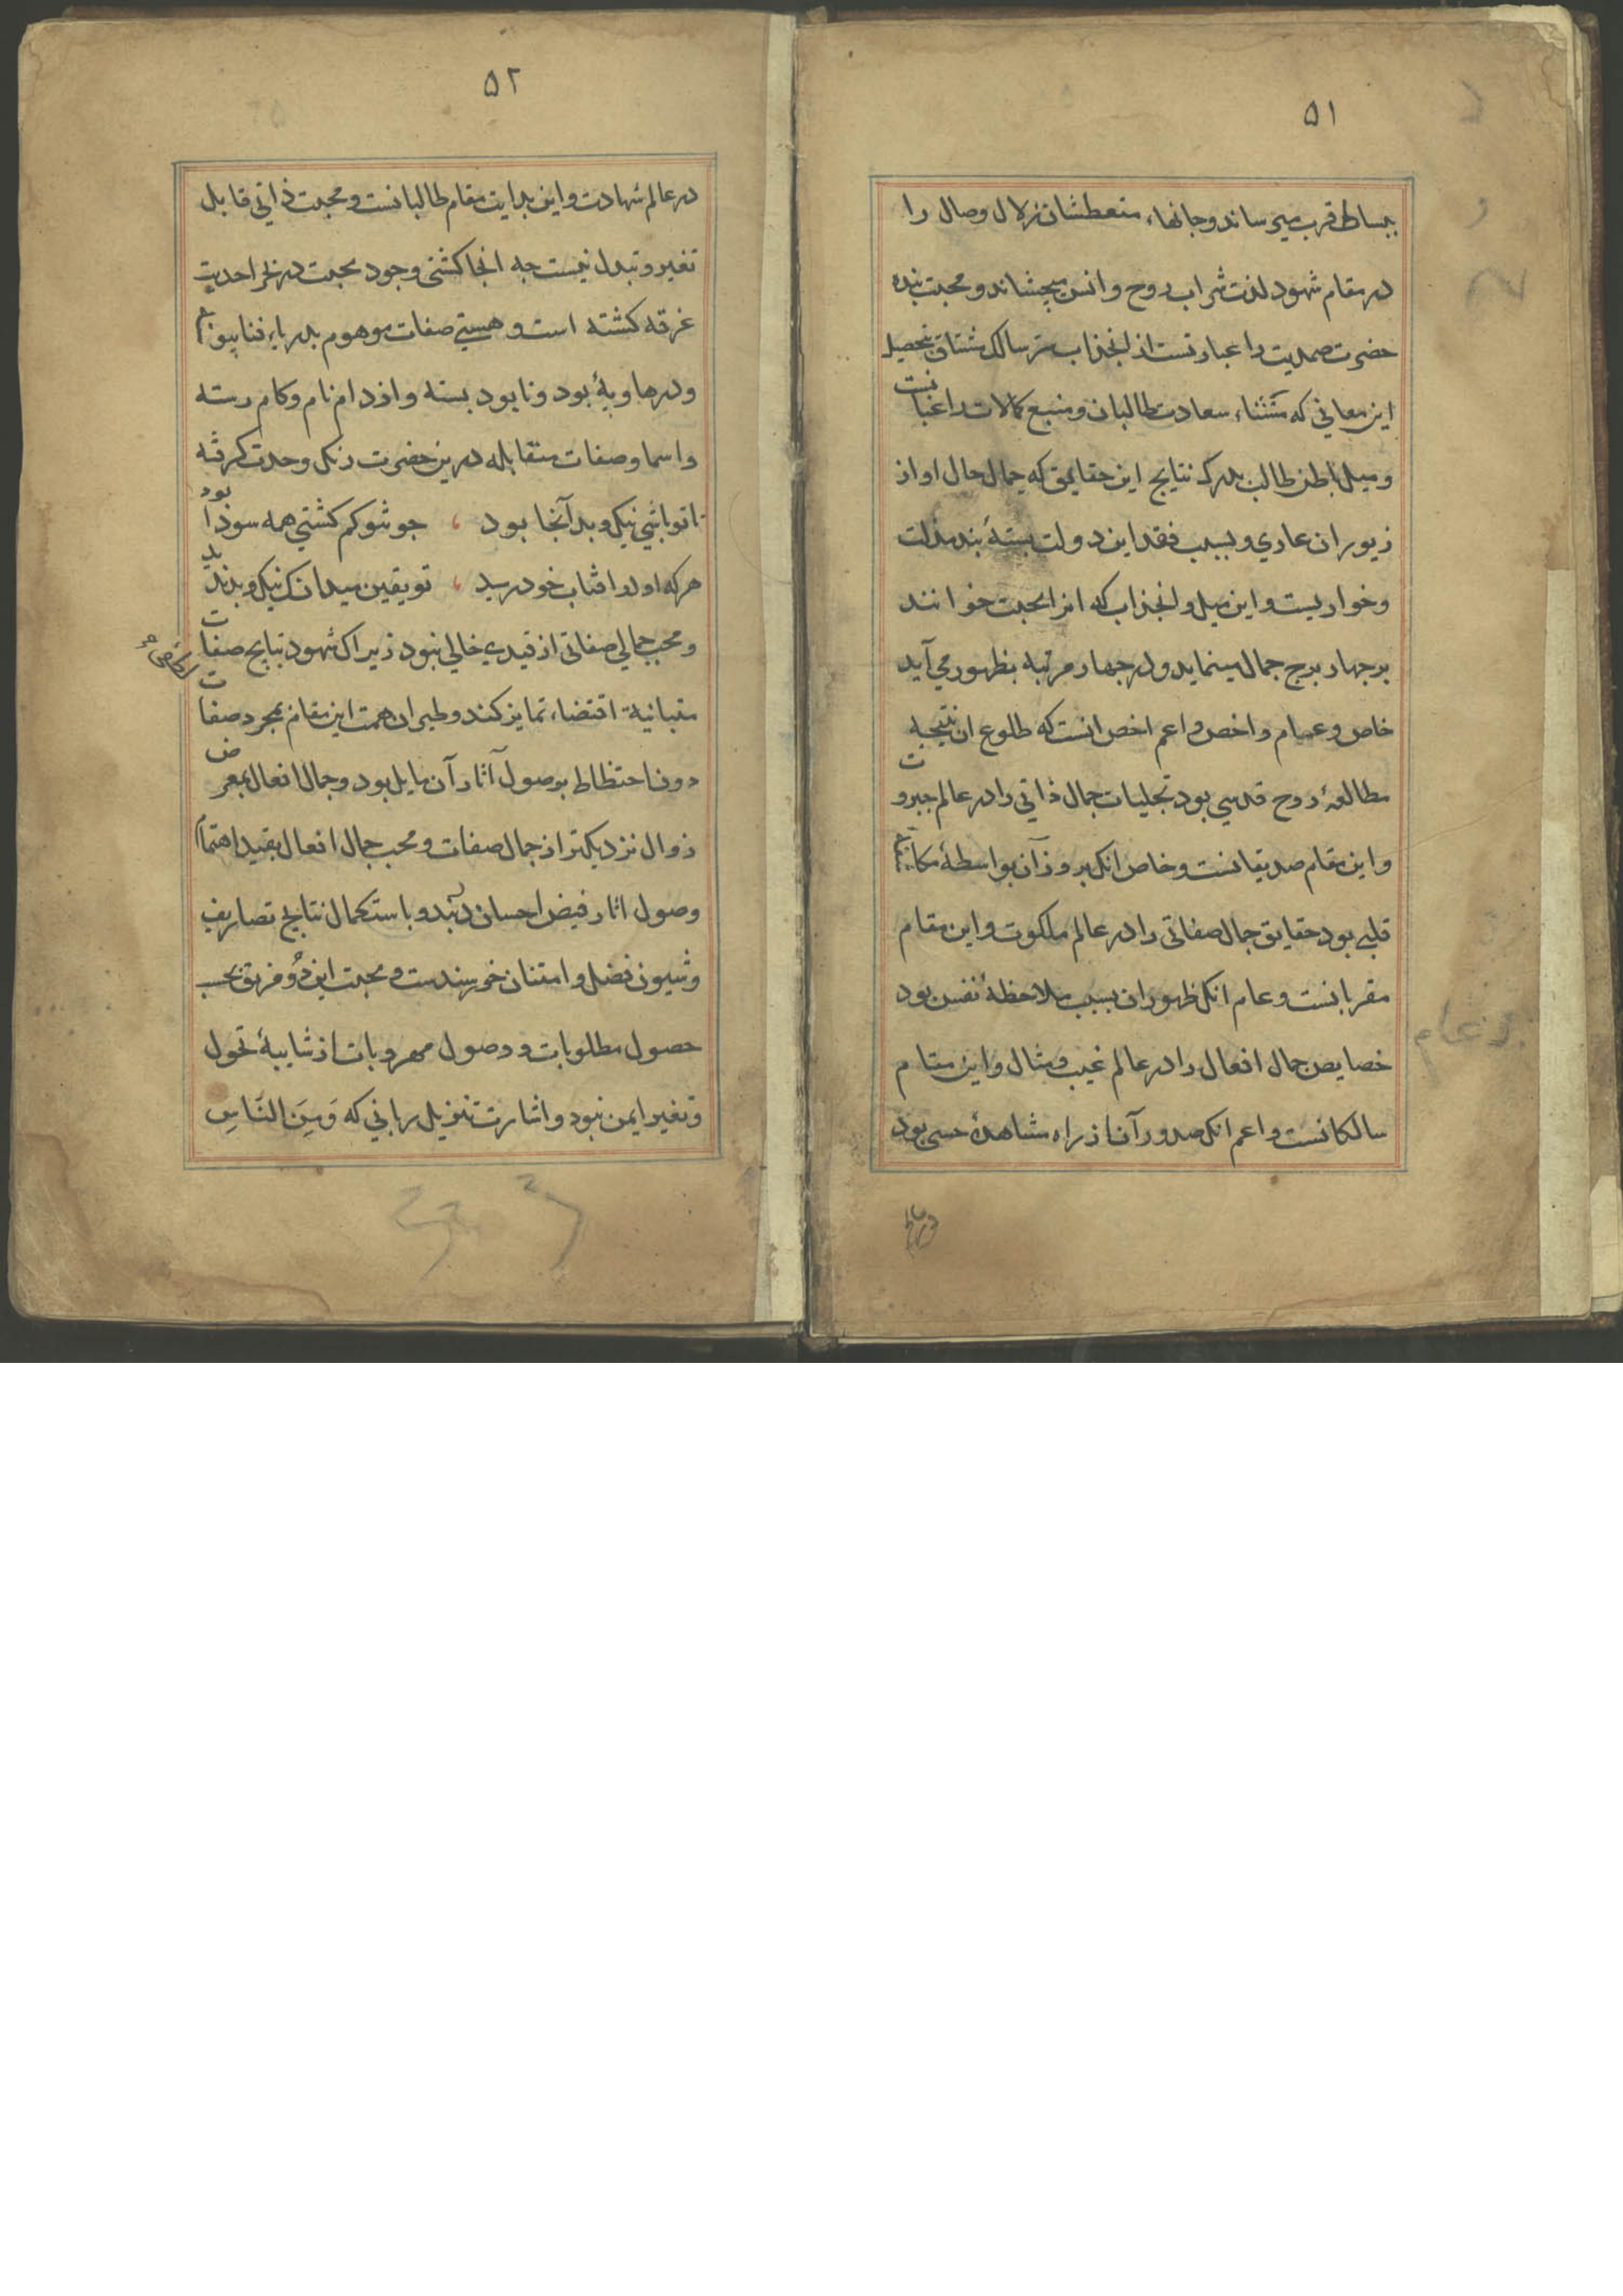 ۵۱
ببساط قرب میرساند و جانهاء متعطشان زلال وصال را
در مقام شهود لذت شراب روح و انس میچشاند و محبت بنده
حضرت صمدیت را عبارتست از انجذاب سر سالک مشتاق بتحصیل
این معانی که منشاء سعادت طالبان و منبع کمالات راغبانست
و میل باطن طالب بدرک نتایج این حقایق که جمال حال او از
زیور ان عاری و بسبب فقد این دولت بستهٔ بند مذلت
و خواریست و این میل و انجذاب که انرا محبت خوانند
بر چهار برج جمال مینماید و در چهار مرتبه بظهور می آید
خاص و عام و اخص و اعم اخص انست که طلوع ان نتیجه
مطالعهٔ روح قدسی بود تجلیات جمال ذاتی را در عالم جبروت
و این مقام صدیقانست و خاص انک بروز آن بواسطهٔ مکاشفهٔ
قلبی بود حقایق جمال صفاتی را در عالم ملکوت و این مقام
مقربانست و عام انک ظهور ان بسبب ملاحظهٔ نفس بود
خصایص جمال افعال را در عالم غیب و مثال و این مقام
سالکانست و اعم انک صدور آن از راه مشاهدهٔ حسی بود
۵۲
در عالم شهادت و این بدایت مقام طالبانست و محبت ذاتی قابل
تغیر و تبدل نیست چه انجا کشتی وجود محبت در بحر احدیت
غرقه کشته است و هستی صفات موهوم بدریاء فنا
و در هاویهٔ بود و نابود بسته و از دام نام و کام رسته
و اسما و صفات متقابله درین حضرت رنک وحدت کرفته
تا تو باشی نیک و بد آنجا بود ، چو تو کم کشتی همه سودا بود
هر که او در افتاب خود رسید ، تو یقین میدان که نیک و بد ندید
و محب جمالی صفاتی از قیدی خالی نبود زیرا ک شهود نتایج صفات
متباینة اقتضاء تمایز کند و طیران همت این مقام بمجرد صفات
دون احتظاظ بوصول آثار آن مایل بود و جمال افعال بمعرض
زوال نزدیکتر از جمال صفات و محب جمال افعال بقید اهتمام
وصول اثار فیض احسان دربند و باستکمال نتایج تصاریف
و شیون فضل و امتنان خرسندست و محبت این دو فریق بحسب
حصول مطلوبات و وصول مهروبات از شایبهٔ تحول
و تغیر ایمن نبود و اشارت تنزیل ربانی که وَمِنَ النَّاسِ